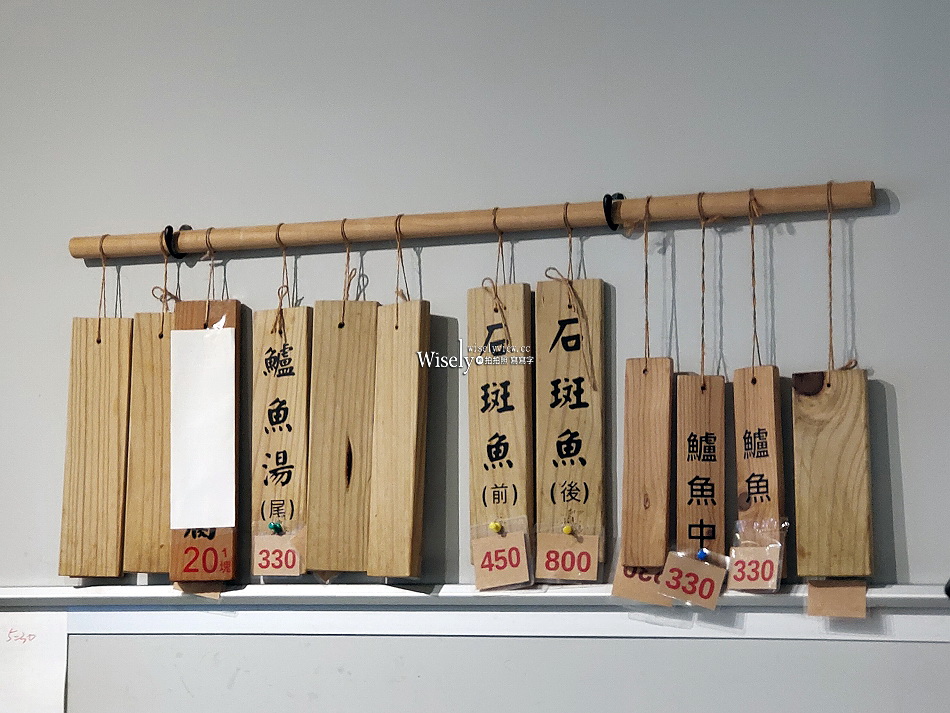 20 1塊
鱸魚湯(尾)
330
石斑魚(前)
450
石斑魚(後)
800
鱸魚中
330
鱸魚
330
Wisely
wiselyview.cc
拍拍照 寫寫字